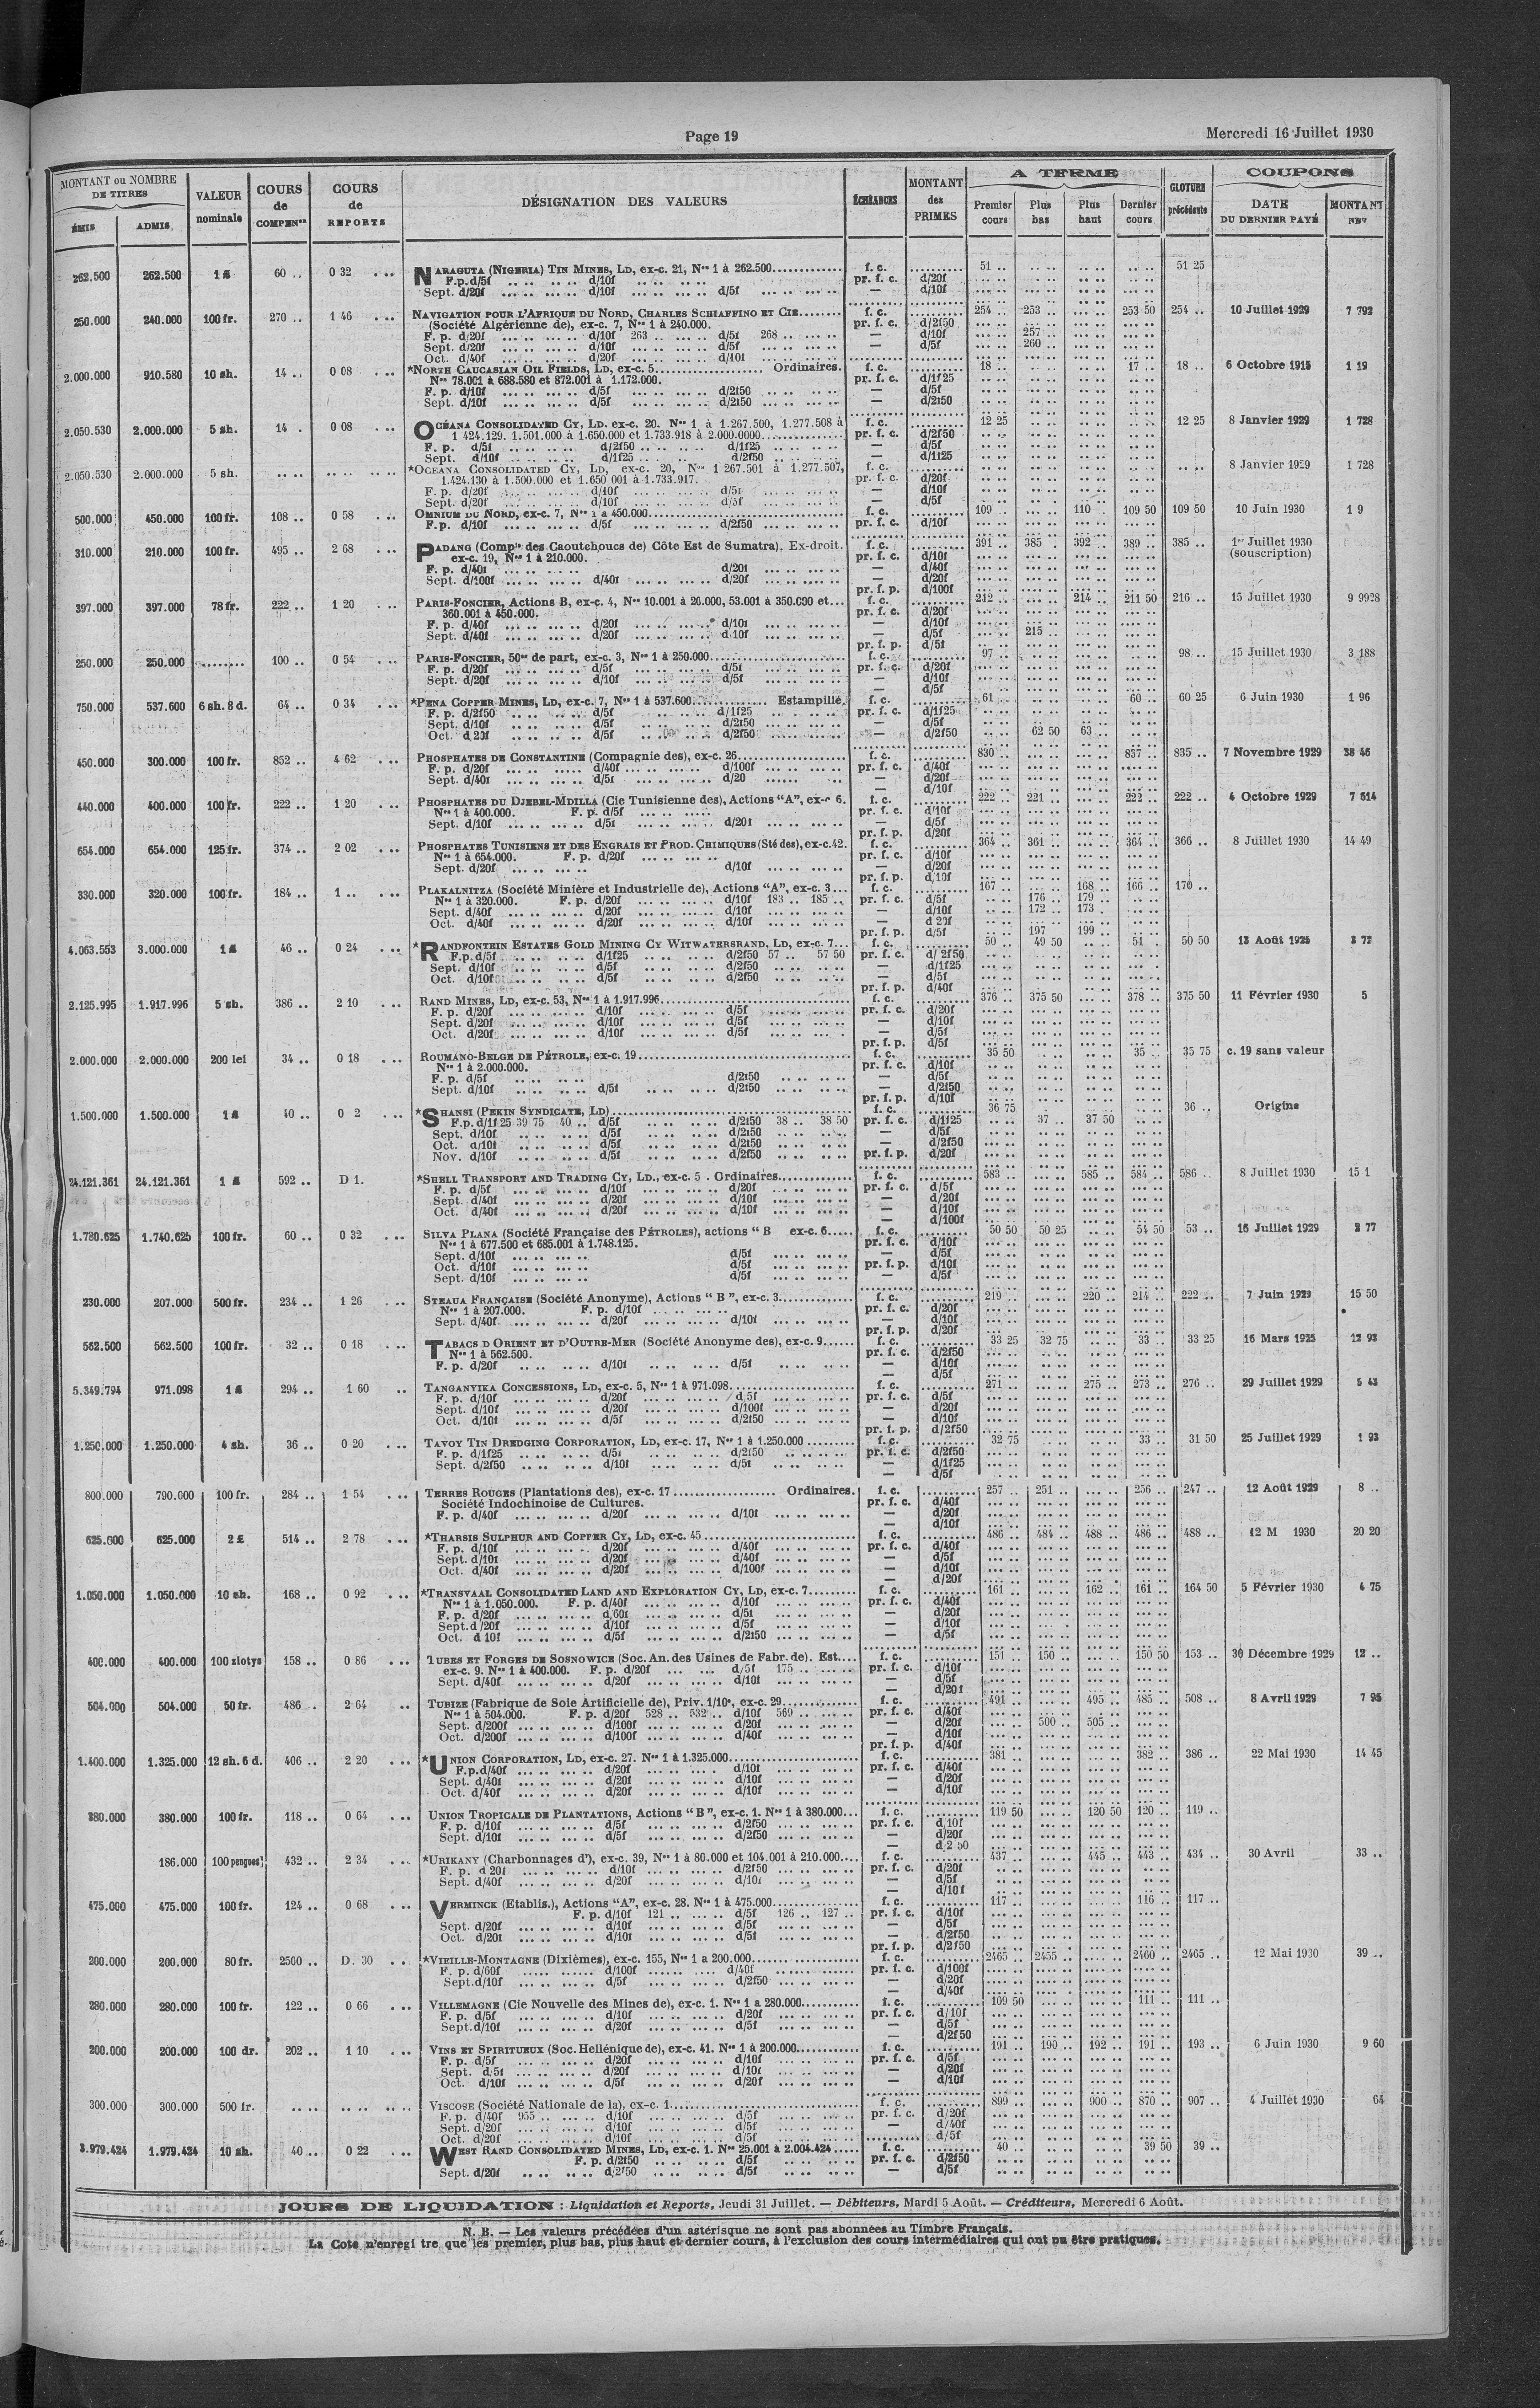 Page 19
Mercredi 16 Juillet 1930
MONTANT ou NOMBRE DE TITRES
ÉMIS
ADMIS
VALEUR nominale
COURS de COMPENon
COURS de REPORTS
DÉSIGNATION DES VALEURS
ÉCHÉANCES
MONTANT des PRIMES
A TERME
Premier cours
Plus bas
Plus haut
Dernier cours
CLOTURE précédente
COUPONS
DATE DU DERNIER PAYÉ
MONTANT NET
262.500 262.500 1 £ 60 .. 0 32 NARAGUTA (NIGERIA) TIN MINES, LD, ex-c. 21, Nos 1 à 262.500 f. c. 51 .. 51 25
F.p. d/5f d/10f pr. f. c. d/20f
Sept. d/20f d/10f d/5f — d/10f
250.000 240.000 100 fr. 270 .. 1 46 NAVIGATION POUR L'AFRIQUE DU NORD, CHARLES SCHIAFFINO ET CIE f. c. 254 .. 253 .. 253 50 254 .. 10 Juillet 1929 7 792
(Société Algérienne de), ex-c. 7, Nos 1 à 240.000. pr. f. c. d/2f50
F. p. d/20f d/10f 263 .. d/5f 268 .. — d/10f 257 ..
Sept. d/20f d/10f d/5f — d/5f 260 ..
Oct. d/40f d/20f d/10f
2.000.000 910.580 10 sh. 14 .. 0 08 *NORTH CAUCASIAN OIL FIELDS, LD, ex-c. 5 Ordinaires. f. c. 18 .. 17 .. 18 .. 6 Octobre 1915 1 19
Nos 78.001 à 688.580 et 872.001 à 1.172.000. pr. f. c. d/1f25
F. p. d/10f d/5f d/2f50 — d/5f
Sept. d/10f d/5f d/2f50 — d/2f50
2.050.530 2.000.000 5 sh. 14 . 0 08 OCÉANA CONSOLIDATED CY, LD. ex-c. 20. Nos 1 à 1.267.500, 1.277.508 à f. c. 12 25 12 25 8 Janvier 1929 1 728
1 424.129. 1.501.000 à 1.650.000 et 1.733.918 à 2.000.0000 pr. f. c. d/2f50
F. p. d/5f d/2f50 d/1f25 — d/5f
Sept. d/10f d/1f25 d/2f50 — d/1f25
2.050.530 2.000.000 5 sh. *OCEANA CONSOLIDATED CY, LD, ex-c. 20, Nos 1 267.501 à 1.277.507, f. c. 8 Janvier 1929 1 728
1.424.130 à 1.500.000 et 1.650 001 à 1.733.917. pr. f. c. d/20f
F. p. d/20f d/10f d/5f — d/10f
Sept. d/20f d/10f d/5f — d/5f
500.000 450.000 100 fr. 108 .. 0 58 OMNIUM DU NORD, ex-c. 7, Nos 1 à 450.000 f. c. 109 .. 110 .. 109 50 109 50 10 Juin 1930 1 9
F. p. d/10f d/5f d/2f50 pr. f. c. d/10f
310.000 210.000 100 fr. 495 .. 2 68 PADANG (Compie des Caoutchoucs de) Côte Est de Sumatra). Ex-droit. f. c. 391 .. 385 .. 392 .. 389 .. 385 .. 1er Juillet 1930
ex-c. 19, Nos 1 à 210.000. pr. f. c. d/10f (souscription)
F. p. d/40f d/20f — d/40f
Sept. d/100f d/40f d/20f — d/20f
pr. f. p. d/100f
397.000 397.000 78 fr. 222 .. 1 20 PARIS-FONCIER, Actions B, ex-c. 4, Nos 10.001 à 20.000, 53.001 à 350.000 et f. c. 212 .. 214 .. 211 50 216 .. 15 Juillet 1930 9 9928
360.001 à 450.000. pr. f. c. d/20f
F. p. d/40f d/20f d/10f — d/10f
Sept. d/40f d/20f d 10f — d/5f 215 ..
pr. f. p. d/5f
250.000 250.000 100 .. 0 54 PARIS-FONCIER, 50es de part, ex-c. 3, Nos 1 à 250.000 f. c. 97 .. 98 .. 15 Juillet 1930 3 188
F. p. d/20f d/5f d/5f pr. f. c. d/20f
Sept. d/20f d/10f d/5f — d/10f
— d/5f
750.000 537.600 6 sh. 8 d. 64 .. 0 34 *PENA COPPER MINES, LD, ex-c. 7, Nos 1 à 537.600 Estampillé. f. c. 61 .. 60 .. 60 25 6 Juin 1930 1 96
F. p. d/2f50 d/5f d/1f25 pr. f. c. d/1f25
Sept. d/10f d/5f d/2f50 — d/5f
Oct. d 20f d/5f d/2f50 — d/2f50 62 50 63 ..
450.000 300.000 100 fr. 852 .. 4 62 PHOSPHATES DE CONSTANTINE (Compagnie des), ex-c. 26 f. c. 830 .. 837 .. 835 .. 7 Novembre 1929 38 46
F. p. d/20f d/40f d/100f pr. f. c. d/40f
Sept. d/40f d/5f d/20 — d/20f
— d/10f
440.000 400.000 100 fr. 222 .. 1 20 PHOSPHATES DU DJEBEL-MDILLA (Cie Tunisienne des), Actions "A", ex-c 6. f. c. 222 .. 221 .. 222 .. 222 .. 4 Octobre 1929 7 614
Nos 1 à 400.000. F. p. d/5f pr. f. c. d/10f
Sept. d/10f d/5f d/20f — d/5f
pr. f. p. d/20f
654.000 654.000 125 fr. 374 .. 2 02 PHOSPHATES TUNISIENS ET DES ENGRAIS ET PROD. CHIMIQUES (Sté des), ex-c. 42. f. c. 364 .. 361 .. 364 .. 366 .. 8 Juillet 1930 14 49
Nos 1 à 654.000. F. p. d/20f pr. f. c. d/10f
Sept. d/20f d/10f — d/20f
pr. f. p. d/10f
330.000 320.000 100 fr. 184 .. 1 .. PLAKALNITZA (Société Minière et Industrielle de), Actions "A", ex-c. 3 f. c. 167 .. 168 .. 166 .. 170 ..
Nos 1 à 320.000. F. p. d/20f d/10f 183 .. 185 .. pr. f. c. d/5f 176 .. 179 ..
Sept. d/40f d/20f d/10f — d/10f 172 .. 173 .
Oct. d/40f d/20f d/10f — d 20f
pr. f. p. d/5f 197 199 ..
4.063.553 3.000.000 1 £ 46 .. 0 24 *RANDFONTEIN ESTATES GOLD MINING CY WITWATERSRAND, LD, ex-c. 7 f. c. 50 .. 49 50 51 . 50 50 13 Août 1925 3 72
F. p. d/5f d/1f25 d/2f50 57 .. 57 50 pr. f. c. d/ 2f50
Sept. d/10f d/5f d/2f50 — d/1f25
Oct. d/10f d/5f d/2f50 — d/5f
pr. f. p. d/40f
2.125.995 1.917.996 5 sh. 386 .. 2 10 RAND MINES, LD, ex-c. 53, Nos 1 à 1.917.996 f. c. 376 .. 375 50 378 .. 375 50 11 Février 1930 5
F. p. d/20f d/10f d/5f pr. f. c. d/20f
Sept. d/20f d/10f d/5f — d/10f
Oct. d/20f d/10f d/5f — d/5f
pr. f. p. d/5f
2.000.000 2.000.000 200 lei 34 .. 0 18 ROUMANO-BELGE DE PÉTROLE, ex-c. 19 f. c. 35 50 35 .. 35 75 c. 19 sans valeur
Nos 1 à 2.000.000. pr. f. c. d/10f
F. p. d/5f d/2f50 — d/5f
Sept. d/10f d/5f d/2f50 — d/2f50
pr. f. p. d/10f
1.500.000 1.500.000 1 £ 40 .. 0 2 *SHANSI (PEKIN SYNDICATE, LD) f. c. 36 75 36 .. Origine
F.p. d/1f25 39 75 40 .. d/5f d/2f50 38 .. 38 50 pr. f. c. d/1f25 37 .. 37 50
Sept. d/10f d/5f d/2f50 — d/5f
Oct. d/10f d/5f d/2f50 — d/2f50
Nov. d/10f d/5f d/2f50 pr. f. p. d/20f
24.121.361 24.121.361 1 £ 592 .. D 1. *SHELL TRANSPORT AND TRADING CY, LD., ex-c. 5 . Ordinaires f. c. 583 .. 585 .. 584 .. 586 .. 8 Juillet 1930 15 1
F. p. d/5f d/10f d/20f pr. f. c. d/5f
Sept. d/40f d/20f d/10f — d/20f
Oct. d/40f d/20f d/10f — d/10f
— d/100f
1.780.625 1.740.625 100 fr. 60 .. 0 32 SILVA PLANA (Société Française des PÉTROLES), actions " B ex-c. 6 f. c. 50 50 50 25 54 50 53 .. 16 Juillet 1929 3 77
Nos 1 à 677.500 et 685.001 à 1.748.125. pr. f. c. d/10f
Sept. d/10f d/5f — d/5f
Oct. d/10f d/5f pr. f. p. d/10f
Sept. d/10f d/5f — d/5f
230.000 207.000 500 fr. 234 .. 1 26 STEAUA FRANÇAISE (Société Anonyme), Actions " B ", ex-c. 3 f. c. 219 .. 220 .. 214 .. 222 .. 7 Juin 1929 15 50
Nos 1 à 207.000. F. p. d/10f pr. f. c. d/20f
Sept. d/40f d/20f d/10f — d/10f
pr. f. p. d/20f
562.500 562.500 100 fr. 32 .. 0 18 TABACS D ORIENT ET D'OUTRE-MER (Société Anonyme des), ex-c. 9 f. c. 33 25 32 75 33 .. 33 25 16 Mars 1925 12 93
Nos 1 à 562.500. pr. f. c. d/2f50
F. p. d/20f d/10f d/5f — d/10f
— d/5f
5.349.794 971.098 1 £ 294 .. 1 60 TANGANYIKA CONCESSIONS, LD, ex-c. 5, Nos 1 à 971.098 f. c. 271 .. 275 .. 273 .. 276 .. 29 Juillet 1929 5 43
F. p. d/10f d/20f d 5f pr. f. c. d/5f
Sept. d/10f d/20f d/100f — d/20f
Oct. d/10f d/5f d/2f50 — d/10f
pr. f. p. d/2f50
1.250.000 1.250.000 4 sh. 36 .. 0 20 TAVOY TIN DREDGING CORPORATION, LD, ex-c. 17, Nos 1 à 1.250.000 f. c. 32 75 33 .. 31 50 25 Juillet 1929 1 93
F. p. d/1f25 d/5f d/2f50 pr. f. c. d/2f50
Sept. d/2f50 d/10f d/5f — d/1f25
— d/5f
800.000 790.000 100 fr. 284 .. 1 54 TERRES ROUGES (Plantations des), ex-c. 17 Ordinaires. f. c. 257 .. 251 .. 256 .. 247 .. 12 Août 1929 8 ..
Société Indochinoise de Cultures. pr. f. c. d/40f
F. p. d/40f d/20f d/10f — d/20f
— d/10f
625.000 625.000 2 £ 514 .. 2 78 *THARSIS SULPHUR AND COPPER CY, LD, ex-c. 45 f. c. 486 .. 484 .. 488 .. 486 .. 488 .. 12 M 1930 20 20
F. p. d/10f d/20f d/40f pr. f. c. d/40f
Sept. d/10f d/20f d/40f — d/5f
Oct. d/40f d/20f d/100f — d/10f
— d/20f
1.050.000 1.050.000 10 sh. 168 .. 0 92 *TRANSVAAL CONSOLIDATED LAND AND EXPLORATION CY, LD, ex-c. 7 f. c. 161 .. 162 .. 161 .. 164 50 5 Février 1930 4 75
Nos 1 à 1.050.000. F. p. d/40f d/10f pr. f. c. d/40f
F. p. d/20f d,60f d/5f — d/20f
Sept. d/20f d/10f d/5f — d/10f
Oct. d 10f d/5f d/2f50 — d/5f
400.000 400.000 100 zlotys 158 .. 0 86 TUBES ET FORGES DE SOSNOWICE (Soc. An. des Usines de Fabr. de). Est. f. c. 151 .. 150 .. 150 50 153 .. 30 Décembre 1929 12 ..
ex-c. 9. Nos 1 à 400.000. F. p. d/20f d/5f 175 .. pr. f. c. d/10f
Sept. d/40f d/20f d/10f — d/5f
— d/20f
504.000 504.000 50 fr. 486 .. 2 64 TUBIZE (Fabrique de Soie Artificielle de), Priv. 1/10e, ex-c. 29 f. c. 491 .. 495 .. 485 .. 508 .. 8 Avril 1929 7 95
Nos 1 à 504.000. F. p. d/20f 528 .. 532 .. d/10f 569 .. pr. f. c. d/40f
Sept. d/200f d/100f d/20f — d/20f 500 .. 505 ..
Oct. d/200f d/100f d/40f — d/10f
pr. f. p. d/40f
1.400.000 1.325.000 12 sh. 6 d. 406 .. 2 20 *UNION CORPORATION, LD, ex-c. 27. Nos 1 à 1.325.000 f. c. 381 .. 382 .. 386 .. 22 Mai 1930 14 45
F. p. d/40f d/20f d/10f pr. f. c. d/40f
Sept. d/40f d/20f d/10f — d/20f
Oct. d/40f d/20f d/10f — d/10f
380.000 380.000 100 fr. 118 .. 0 64 UNION TROPICALE DE PLANTATIONS, Actions " B ", ex-c. 1. Nos 1 à 380.000 f. c. 119 50 120 50 120 .. 119 ..
F. p. d/10f d/5f d/2f50 pr. f. c. d 10f
Sept. d/10f d/5f d/2f50 — d/20f
— d/2 50
186.000 100 pengoes 432 .. 2 34 *URIKANY (Charbonnages d'), ex-c. 39, Nos 1 à 80.000 et 104.001 à 210.000 f. c. 437 .. 445 .. 443 .. 434 .. 30 Avril 33 ..
F. p. d 20f d/10f d/2f50 pr. f. c. d/20f
Sept. d/40f d/20f d/10f — d/5f
— d/10f
475.000 475.000 100 fr. 124 .. 0 68 VERMINCK (Etablis.), Actions "A", ex-c. 28. Nos 1 à 475.000 f. c. 117 .. 116 .. 117 ..
F. p. d/10f 121 .. d/5f 126 .. 127 .. pr. f. c. d/10f
Sept. d/20f d/10f d/5f — d/5f
Oct. d/20f d/10f d/5f — d/2f50
pr. f. p. d/2f50
200.000 200.000 80 fr. 2500 .. D. 30 *VIEILLE-MONTAGNE (Dixièmes), ex-c. 155, Nos 1 a 200.000 f. c. 2465 .. 2455 .. 2460 .. 2465 .. 12 Mai 1930 39 ..
F. p. d/60f d/100f d/40f pr. f. c. d/100f
Sept. d/10f d/5f d/2f50 — d/20f
— d/40f
280.000 280.000 100 fr. 122 .. 0 66 VILLEMAGNE (Cie Nouvelle des Mines de), ex-c. 1. Nos 1 a 280.000 f. c. 109 50 111 .. 111 ..
F. p. d/5f d/10f d/20f pr. f. c. d/10f
Sept. d/10f d/20f d/5f — d/5f
— d/2f50
200.000 200.000 100 dr. 202 .. 1 10 VINS ET SPIRITUEUX (Soc. Hellénique de), ex-c. 41. Nos 1 à 200.000 f. c. 191 .. 190 .. 192 .. 191 .. 193 .. 6 Juin 1930 9 60
F. p. d/5f d/20f d/10f pr. f. c. d/5f
Sept. d/5f d/20f d/10f — d/20f
Oct. d/10f d/5f d/20f — d/10f
300.000 300.000 500 fr. VISCOSE (Société Nationale de la), ex-c. 1 f. c. 899 .. 900 .. 870 .. 907 .. 4 Juillet 1930 64
F. p. d/40f 955 .. d/10f d/5f pr. f. c. d/20f
Sept. d/20f d/10f d/5f — d/40f
Oct. d/20f d/10f d/5f d/5f
3.979.424 1.979.424 10 sh. 40 .. 0 22 WEST RAND CONSOLIDATED MINES, LD, ex-c. 1. Nos 25.001 à 2.004.424 f. c. 40 .. 39 50 39 ..
F. p. d/2f50 d/5f pr. f. c. d/2f50
Sept. d/20f d/2f50 d/5f — d/5f
JOURS DE LIQUIDATION : Liquidation et Reports, Jeudi 31 Juillet. — Débiteurs, Mardi 5 Août. — Créditeurs, Mercredi 6 Août.
N. B. — Les valeurs précédées d'un astérisque ne sont pas abonnées au Timbre Français.
La Cote n'enregi tre que les premier, plus bas, plus haut et dernier cours, à l'exclusion des cours intermédiaires qui ont pu être pratiqués.